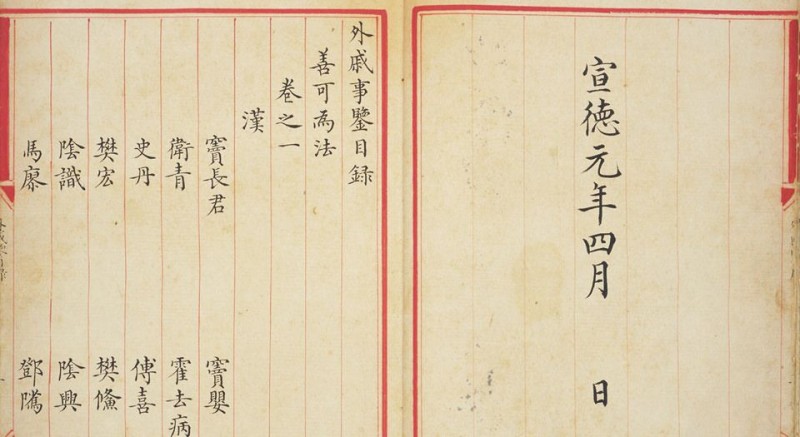 宣徳元年四月 日
外戚事鑒目録
善可為法
卷之一
漢
竇長君 竇嬰
衛青 霍去病
史丹 傅喜
樊宏 樊鯈
陰識 陰興
馬廖 鄧隲